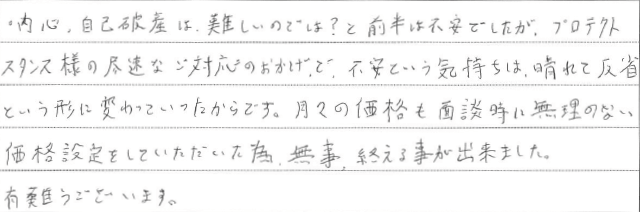 ・内心、自己破産は、難しいのでは？と前半は不安でしたが、プロテクト
スタンス様の尽速なご対応のおかげで、不安という気持ちは、晴れて反省
という形に変わっていったからです。月々の価格も面談時に無理のない
価格設定をしていただいた為、無事、終える事が出来ました。
有難うございます。